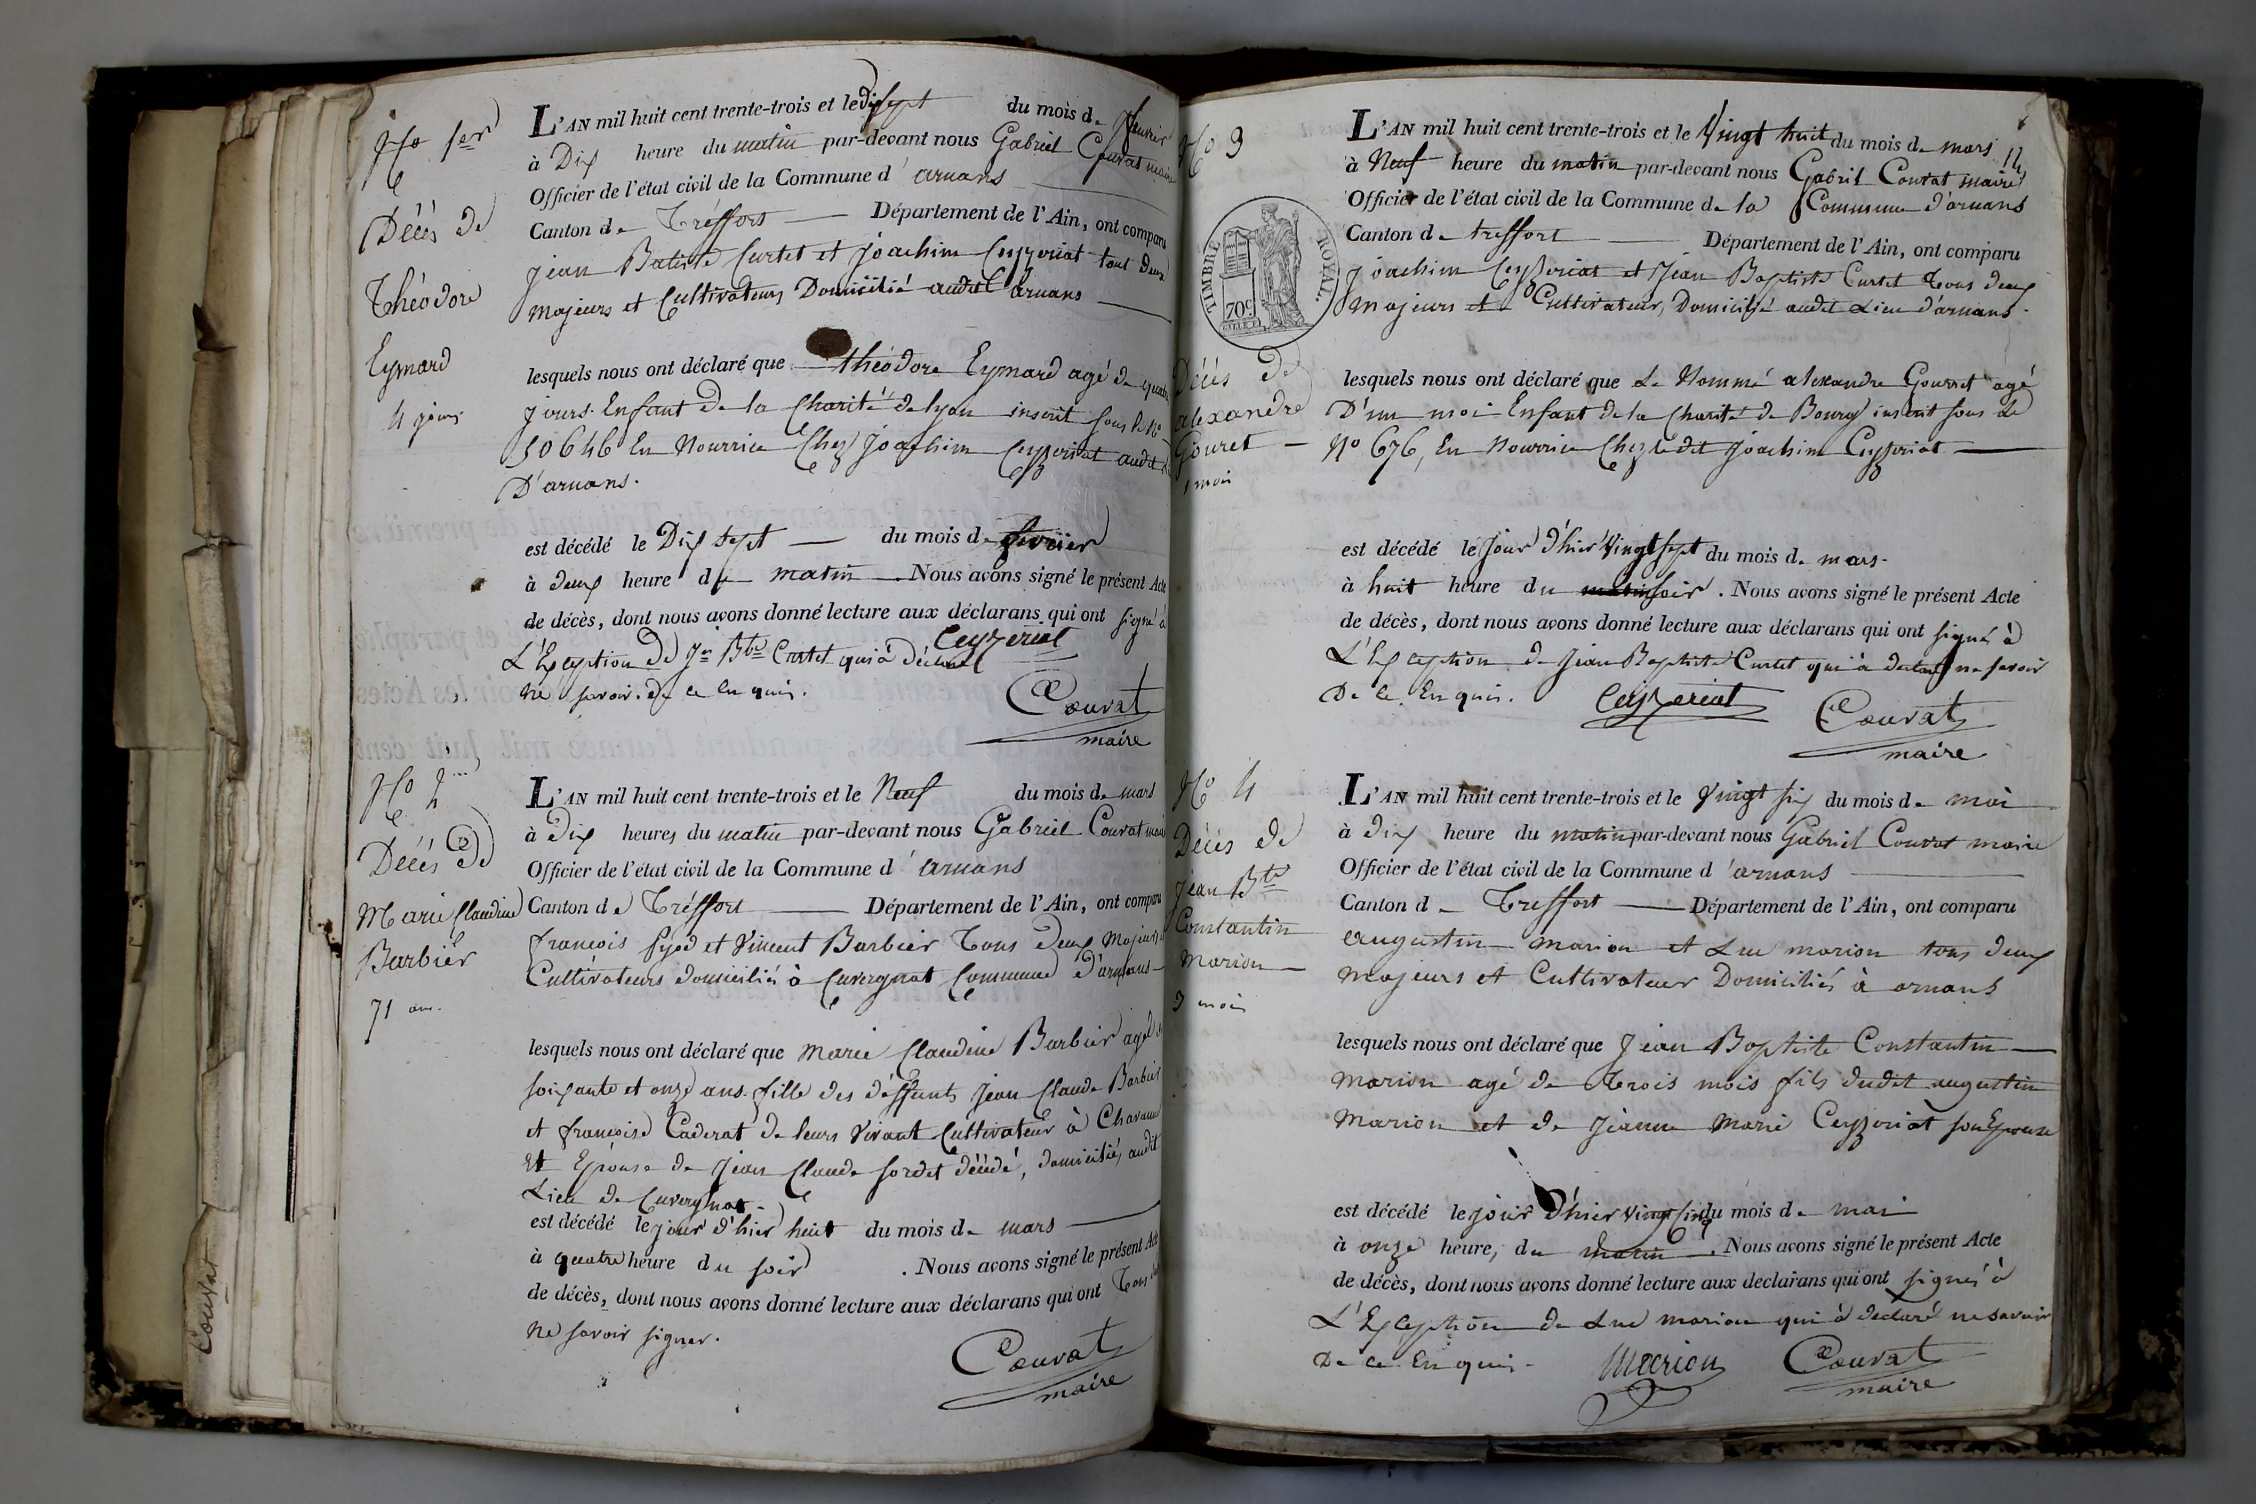 No 1er
Décès de
Théodore
Eymard
4 jours
L'AN mil huit cent trente-trois et le Dix sept du mois de fevrier
à Dix heure du matin par-devant nous Gabriel Couvat maire
Officier de l'état civil de la Commune d' arnans
Canton de Tréffort Département de l'Ain, ont comparu
jean Batiste Curtet et joachim Ceyzeriat tout deux
majeurs et Cultivateurs Domicilié audit arnans
lesquels nous ont déclaré que théodore Eymard agé de quatre
jours. Enfant de la Charité de lyon inscrit sous le No
50646 En Nourrice Chez joachim Ceyzeriat audit
D'arnans.
est décédé le Dix sept du mois de fevrier
à deux heure du matin. Nous avons signé le présent Acte
de décès, dont nous avons donné lecture aux déclarans qui ont signé à
L'Exception de Jn Bte Curtet qui à déclaré Ceyzeriat
ne savoir. de ce Enquis.
Couvat
maire
No 2
Décès de
Marie Claudine
Barbier
71 ans.
L'AN mil huit cent trente-trois et le Neuf du mois de mars
à Dix heures du matin par-devant nous Gabriel Couvat maire
Officier de l'état civil de la Commune d' arnans
Canton de Tréffort Département de l'Ain, ont comparu
françois et Vincent Barbier Tous deux Majeurs
Cultivateurs domiciliés à Cuvergnat Commune D'arnans
lesquels nous ont déclaré que Marie Claudine Barbier agé de
soixante et onze ans. fille des déffunts Jean Claude Barbier
et françoise Caderat de leurs Vivant Cultivateur à
Et Epouse de Jean Claude sordet décédé, domiciliés audit
Lieu de Cuvergnat.
est décédé le jour d'hier huit du mois de mars
à quatre heure du soir. Nous avons signé le présent Acte
de décès, dont nous avons donné lecture aux déclarans qui ont Tous
ne savoir signer.
Couvat
maire
Couvat
No 3
TIMBRE ROYAL.
70c
Décès de
alexandre
Gouret
1 moi
L'AN mil huit cent trente-trois et le Vingt huit du mois de mars
à Neuf heure du matin par-devant nous Gabriel Couvat maire
Officier de l'état civil de la Commune de la Commune d'arnans
Canton de treffort Département de l'Ain, ont comparu
joachim Ceyzeriat et Jean Baptiste Curtet Tous deux
majeurs et Cultivateur, Domicilié audit Lieu d'arnans.
lesquels nous ont déclaré que Le Nommé alexandre Gourret agé
D'un moi Enfant de la Charité de Bourg inscrit sous le
No 676, En Nourrice Chez ledit joachim Ceyzeriat
est décédé le jour d'hier Vingt sept du mois de mars.
à huit heure du matin soir. Nous avons signé le présent Acte
de décès, dont nous avons donné lecture aux déclarans qui ont signés à
L'Exception de Jean Baptiste Curtet qui à declaré ne savoir
De ce Enquis. Ceyzeriat Couvat
maire
No 4
Décès de
jean Bte
Constantin
Marion
3 moi
L'AN mil huit cent trente-trois et le Vingt six du mois de mai
à dix heure du matin par-devant nous Gabriel Couvat maire
Officier de l'état civil de la Commune d' arnans
Canton de Treffort Département de l'Ain, ont comparu
augustin marion et Luc marion tous deux
majeurs et Cultivateur Domiciliés à arnans
lesquels nous ont déclaré que Jean Baptiste Constantin
Marion agé de Trois mois fils dudit augustin
Marion et de Jeanne Marie Ceyzeriat son Epouse
est décédé le jour d'hier Vingt Cinq du mois de mai
à onze heure, du matin. Nous avons signé le présent Acte
de décès, dont nous avons donné lecture aux declarans qui ont signés à
L'Exception de Luc marion qui à declaré ne savoir
De ce Enquis. Marion Couvat
maire